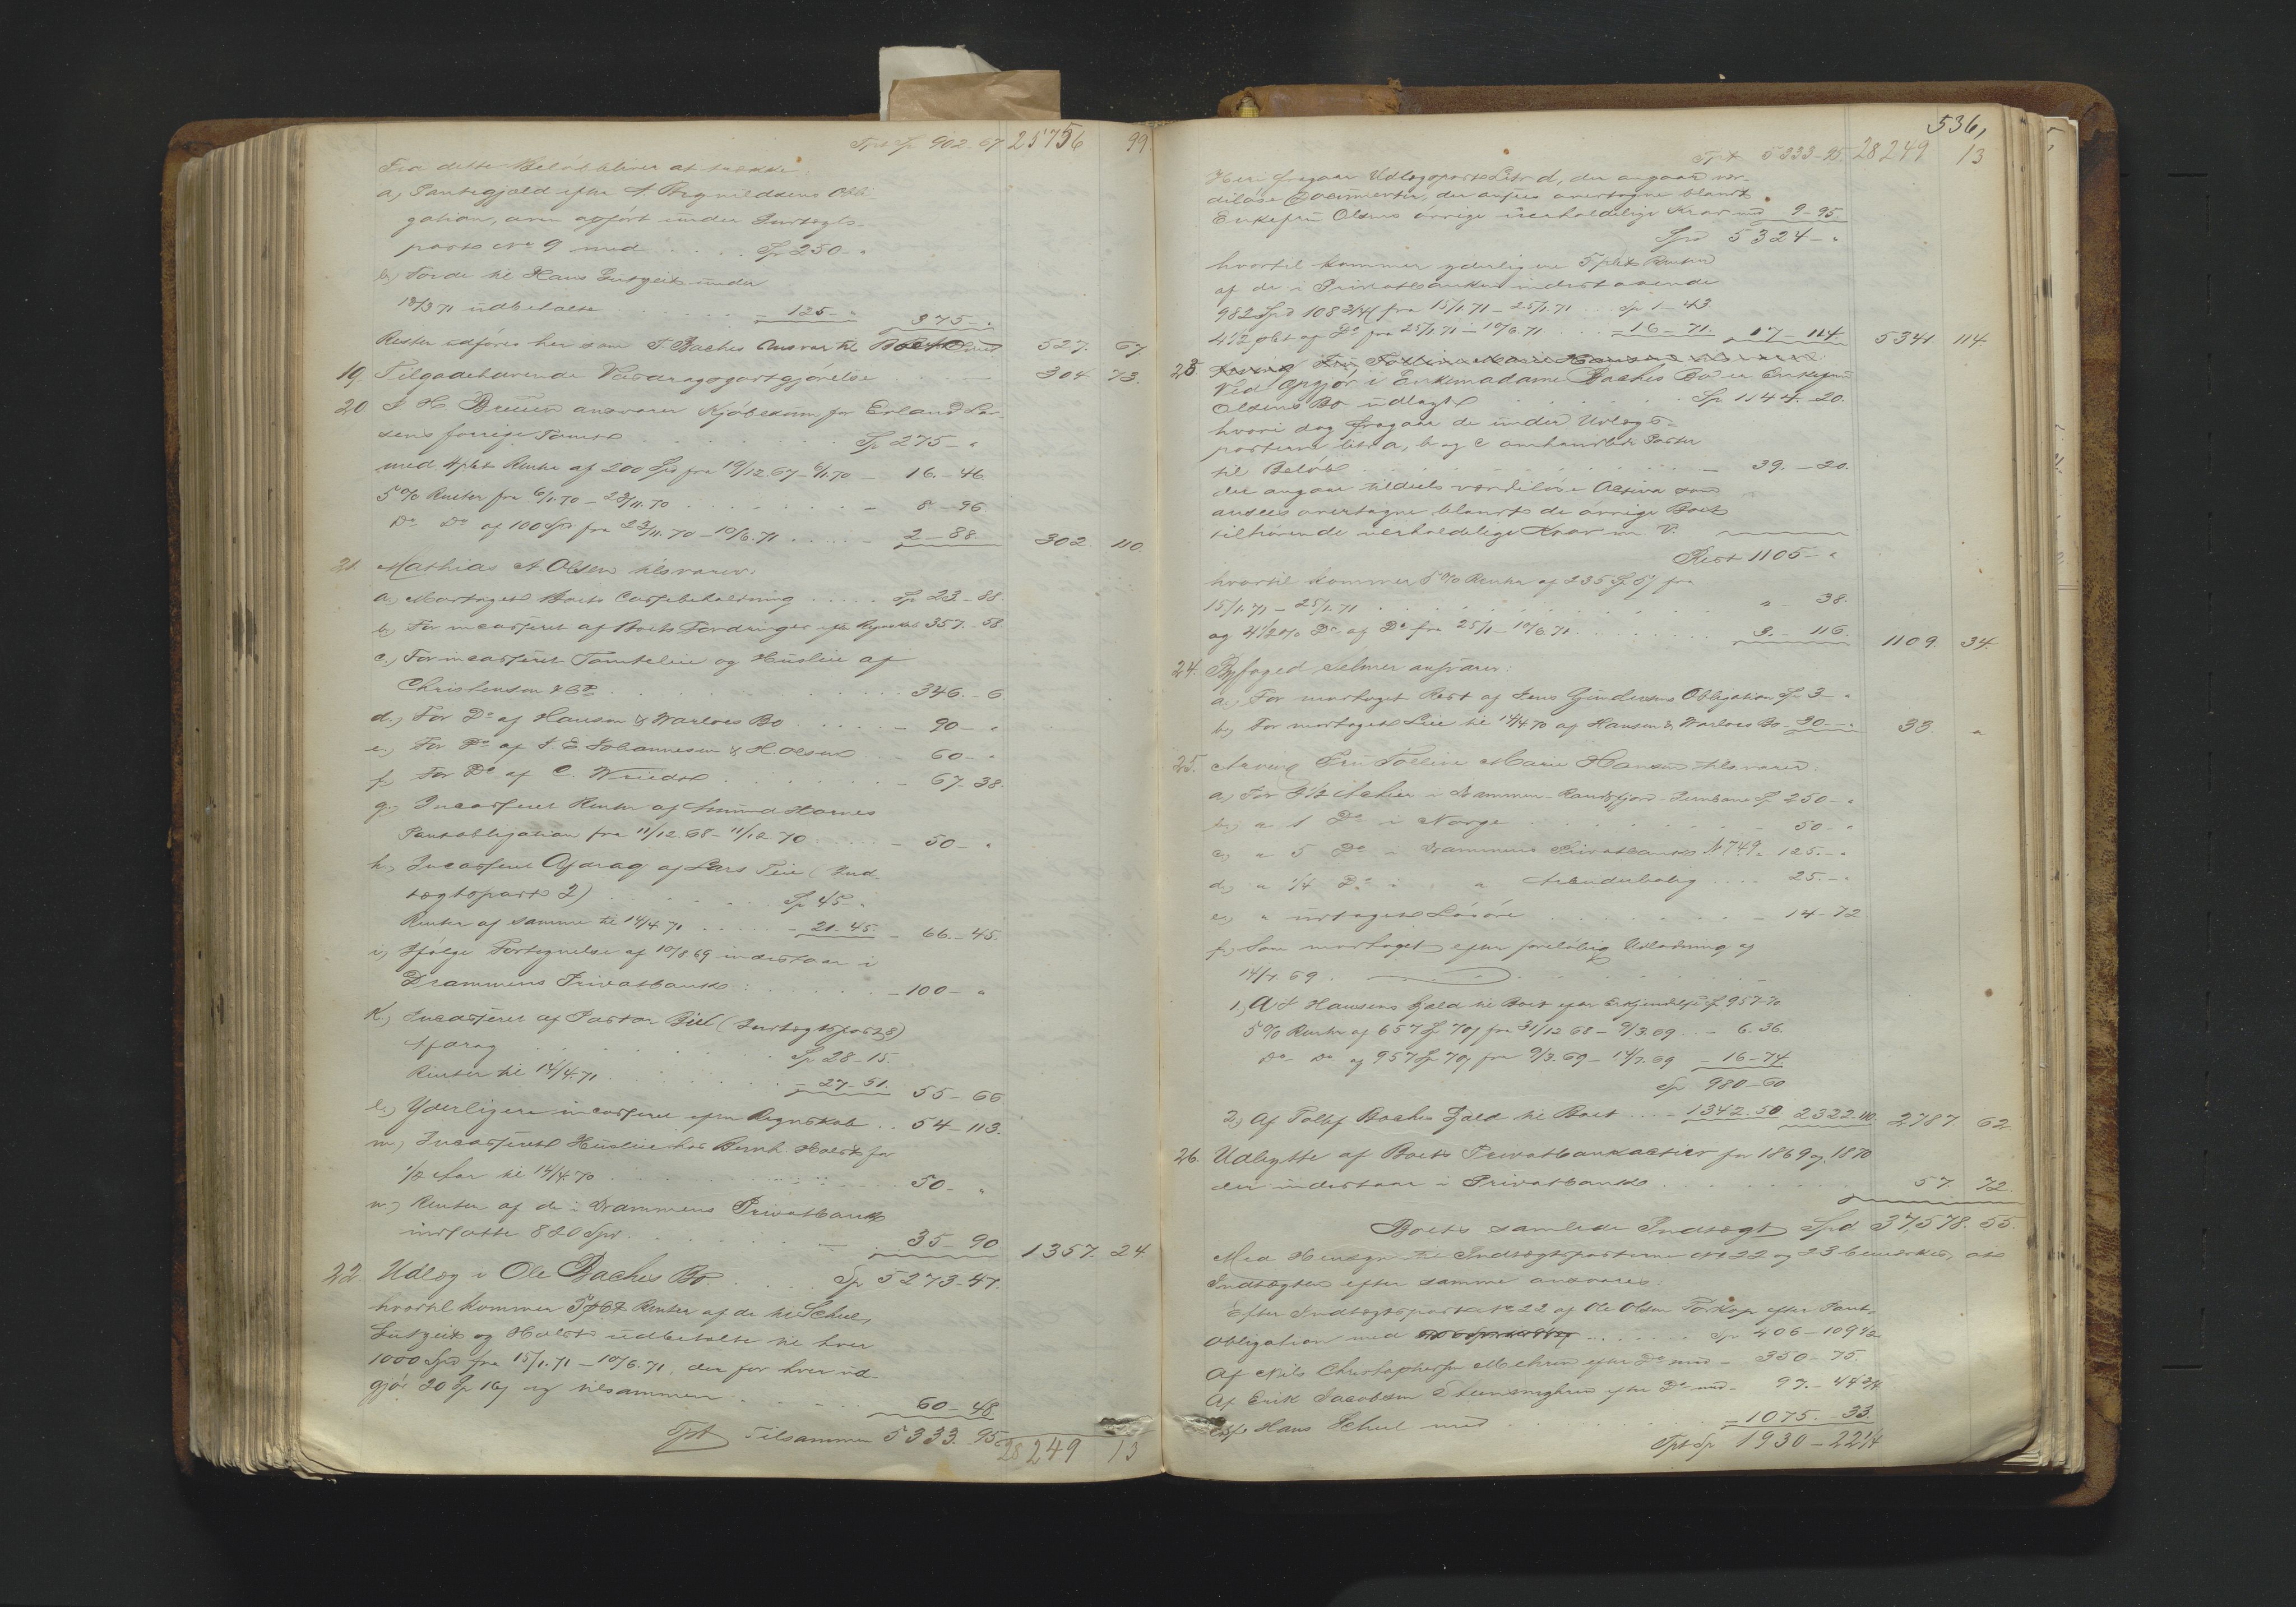 Tpt Sp 902. 67 25756 99
Fra dette Beløb bliver at trække:
a) Pantegjæld efter A Bregnildsens Obli-
gation, oven opført under Indtægts-
posts No 9 med . . . . Sp 250 - "
b) For de til Hans Lutzeit under
18/3 71 udbetalte . . . . - 125 - " 375 - "
Resten udføres her som T. Baches Ansvar til Boet Spd 527. 67.
19. Tilgodehavende Vasdragsgodtgjørelse - 304 73.
20 I H Bruun ansvarer Kjøbesum for Erland Lar-
sens forrige Tomt . . . . Sp 275 - "
med 4 pCt Renter af 200 Spd fra 19/12. 67 - 6/1. 70 - 16. - 46
5 % Renter fra 6/1. 70 - 23/11. 70 . . . . - 8. - 96
Do Do af 100 Sp fra 23/11. 70 - 10/6. 71 . . . . - 2 - 88. 302 110.
21. Mathias A. Olsen tilsvarer:
a.) Modtaget Boets Cassebeholdning . . . . Sp 23 - 88
b.) For incasseret af Boets Fordringer efter Regnskab 357. - 58
c.) For incasseret Tomteleie og Husleie af
Christensen & Co . . . . 346. - 6
d.) For Do af Hansen & Warloes Bo . . . . - 90 - "
e.) For Do af I. E Johannesen & H. Olsen . . - 60 - "
f.) For Do af C. Wriedt . . . . - 67 - 38.
g.) Incasseret Renter af Amund Hornes
Pantobligation fra 11/12 68 - 11/12 70 . . . . - 50 - "
h.) Incasseret Afdrag af Lars Teie (Ind-
tægtspost 2) . . . . Sp 45 - "
Renter af samme til 14/4. 71 . . . . - 21. 45. - 66. - 45.
i) Ifølge Fortegnelse af 10/8 69 indestaar i
Drammens Privatbank . . . . - 100 - "
k.) Incasseret af Pastor Biel (Indtægtspost 8)
Afdrag . . . . Sp 28 - 15.
Renter til 14/4. 71 . . . . - 27 - 51. 55 - 66
l.) Yderligere incasseret efter Regnskab . . 54 - 113.
m.) Incasseret Husleie hos Bernh. Holst for
1/2 Aar til 14/4. 70 . . . . 50 - "
n.) Renter af de i Drammens Privatbank
indsatte 820 Spd. . . . . - 35 - 90 1357. 24
22. Udlæg i Ole Baches Bo . . . . Sp 5273 - 47.
hvortil kommer 5 pCt Renter af de til Scheel,
Lutzeit og Holst udbetalte til hver
1000 Spd fra 15/1. 71 - 10/6. 71, der for hver ud-
gjør 20 Sp 16 og tilsammen . . . . 60 - 48
Tpt Tilsammen 5333. 95. 28249 13
536,
Tpt 5333 - 95. 28249 13
Heri fragaar Udlægspost Litr d, der angaar vær-
diløse Documenter, der ansees overtagne blandt
Enkefru Olsens øvrige uerholdelige Krav med 9 - 95
Spd 5324 - "
hvortil kommer yderligere 5 pCt Renter
af de i Privatbanken indestaaende
982 Spd 108 3/4 fra 15/1 71 - 25/1 71 . . Sp 1 - 43
4 1/2 pCt af Do fra 25/1 71 - 10/6. 71 . . - 16 - 71. 17 - 114. 5341 114.
23. Arving Fru Folline Marie Hansen tilsvarer:
Ved Opgjør i Enkemadame Baches Bo er Enkefru
Olsens Bo udlagt . . . . Sp 1144. 20.
hvori dog fragaar de under Udlægs-
posterne litr a, b og c omhandlede Poster
til Beløb . . . . - 39. - 20.
der angaar tildeels værdiløse Activa som
ansees overtagne blandt de øvrige Boet
tilhørende uerholdelige Krav m V.
Rest 1105 - "
hvortil kommer 5 % Renter af 235 Sp 57 fra
15/1. 71 - 25/1. 71 . . . . " - 38.
og 4 1/2 % Do af Do fra 25/1 - 10/6 71 . . . . 3. - 116. 1109. 34.
24. Byfoged Selmer ansvarer:
a.) For modtaget Rest af Jens Gundersens Obligation Sp 3 - "
b.) For modtaget Leie til 14/4 70 af Hansen & Warloes Bo - 30 - " 33. "
25. Arving Fru Folline Marie Hansen tilsvarer:
a.) For 2 1/2 Actier i Drammen-Randsfjord-Jernbane Sp 250 - "
b.) " 1 Do i Norge . . . . 50 - "
c.) " 5 Do i Drammens Privatbank No 749 " 125. - "
d.) " 1/4 Do " Arbeiderbolig . . . . 25. - "
e.) " udtaget Løsøre . . . . - 14 - 72
f.) Som modtaget efter foreløbig Udlodning af
14/7. 69 . . . .
1.) A & Hansens Gjæld til Boet efter Erkjendelse Sp 957 - 70
5 % Renter af 657 Sp 70 fra 31/12 68 - 9/3. 69 . . - 6. 36.
Do Do af 957 Sp 70 fra 9/3. 69 - 14/7. 69 - 16 - 74.
Sp 980 - 60
2.) Af Tollef Baches Gjæld til Boet . . - 1342. 50 2322. 110. 2787. 62
26. Udbytte af Boets Privatbankactier for 1869 og 1870
der indestaar i Privatbank . . . . 57. 72.
Boets samlede Indtægt Spd 37,578. 55.
Med Hensyn til Indtægtsposterne No 22 og 23 bemærkes, at
Indtægten efter samme ansvares.
Efter Indtægtspost No 22 af Ole Olsen Torkop efter Pant-
Obligation med . . . . Sp 406 - 109 1/2
Af Nils Christophersen Mehren efter Do med - 350 - 75.
Af Erik Jacobsen efter Do med - 97. - 44 3/4
Af Hans Scheel med . . . . - 1075. - 33.
Tpt Sp 1930 - 22 1/4